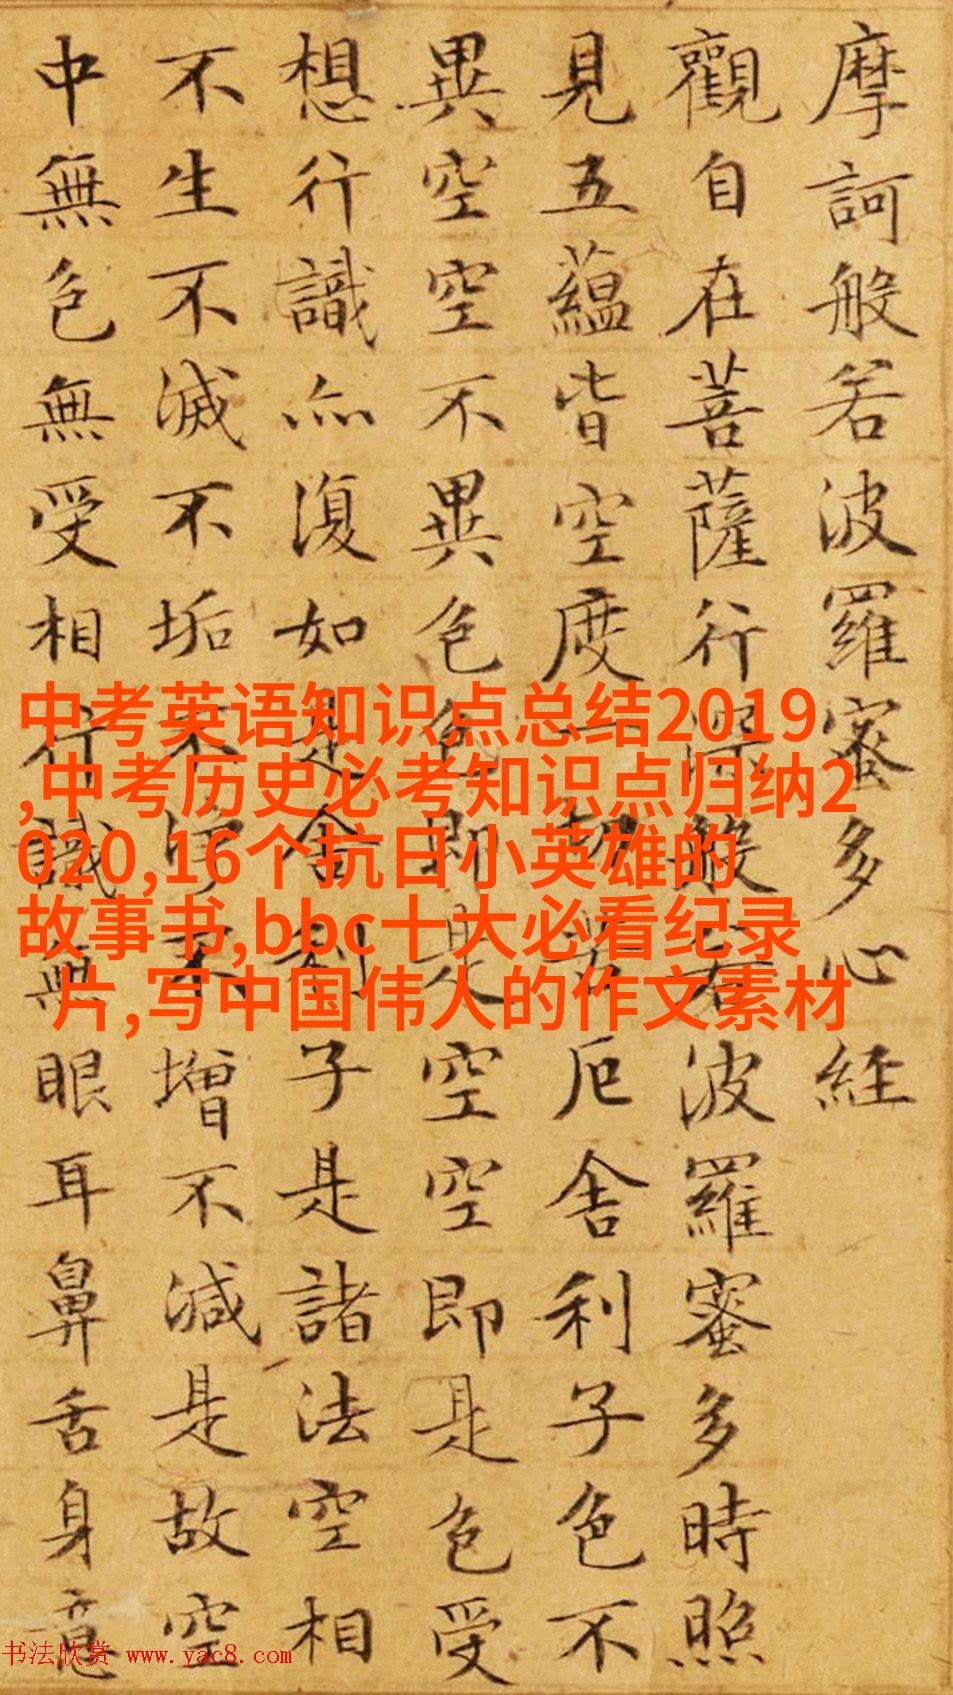 摩訶般若波羅蜜多心経
觀自在菩薩行深般若波羅蜜多時照
見五蘊皆空度一切苦厄舍利子色不
異空空不異色色即是空空即是色受
想行識亦復如是舍利子是諸法空相
不生不滅不垢不淨不增不減是故空
中無色無受相行識無眼耳鼻舌身意
中考英语知识点总结2019
,中考历史必考知识点归纳2
020,16个抗日小英雄的
故事书,bbc十大必看纪录
片,写中国伟人的作文素材
书法欣赏 www.yac8.com